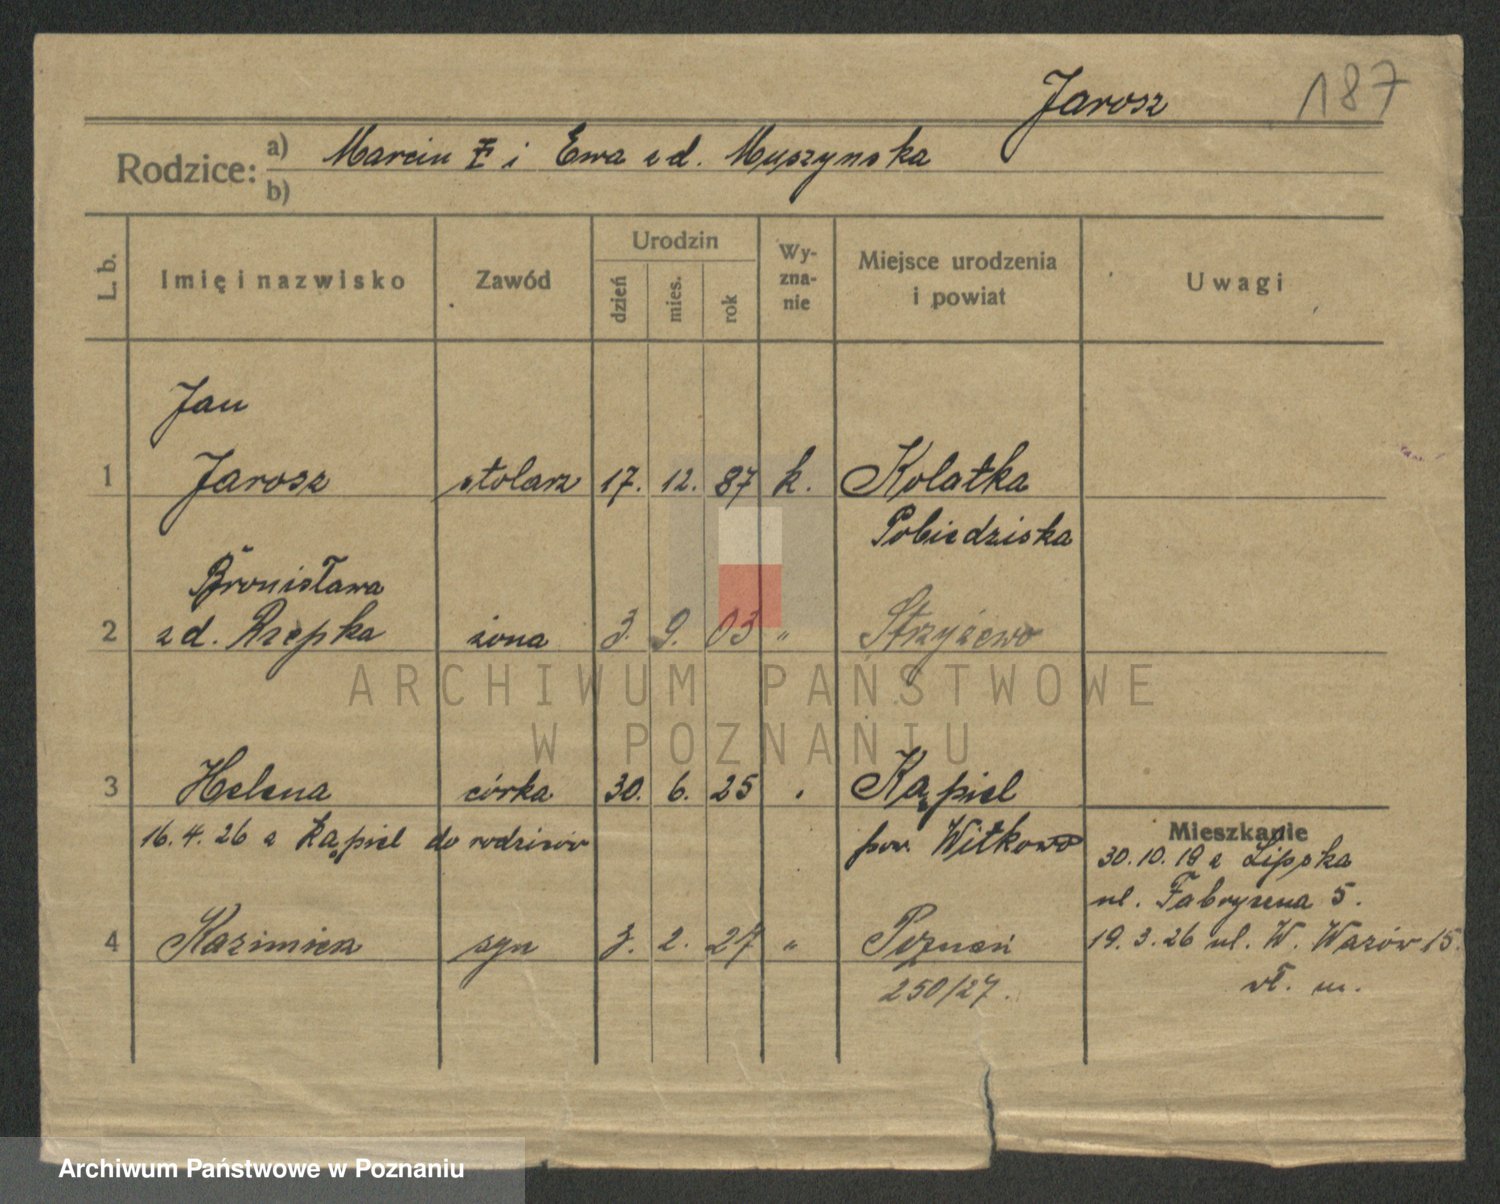 Jarosz 187
Rodzice: a) Marcin i Ewa zd. Muszynska
b)
L. b. Imię i nazwisko Zawód Urodzin dzień mies. rok Wy-zna-nie Miejsce urodzenia i powiat Uwagi
Jan
1 Jarosz stolarz 17. 12. 87 k. Kolatka
Pobiedziska
Bronisława
2 zd. Rzepka żona 3. 9. 03 " Strzyżewo
ARCHIWUM PAŃSTWOWE
W POZNANIU
3 Helena córka 30. 6. 25 " Kąpiel
16. 4. 26 z Kąpiel do rodziców pow. Witkowo
Mieszkanie
30. 10. 18 z Lipska
ul. Fabryczna 5.
4 Kazimierz syn 3. 2. 27 " Poznań
19. 3. 26 ul. W. Wazów 15.
250/27. wł. m.
Archiwum Państwowe w Poznaniu